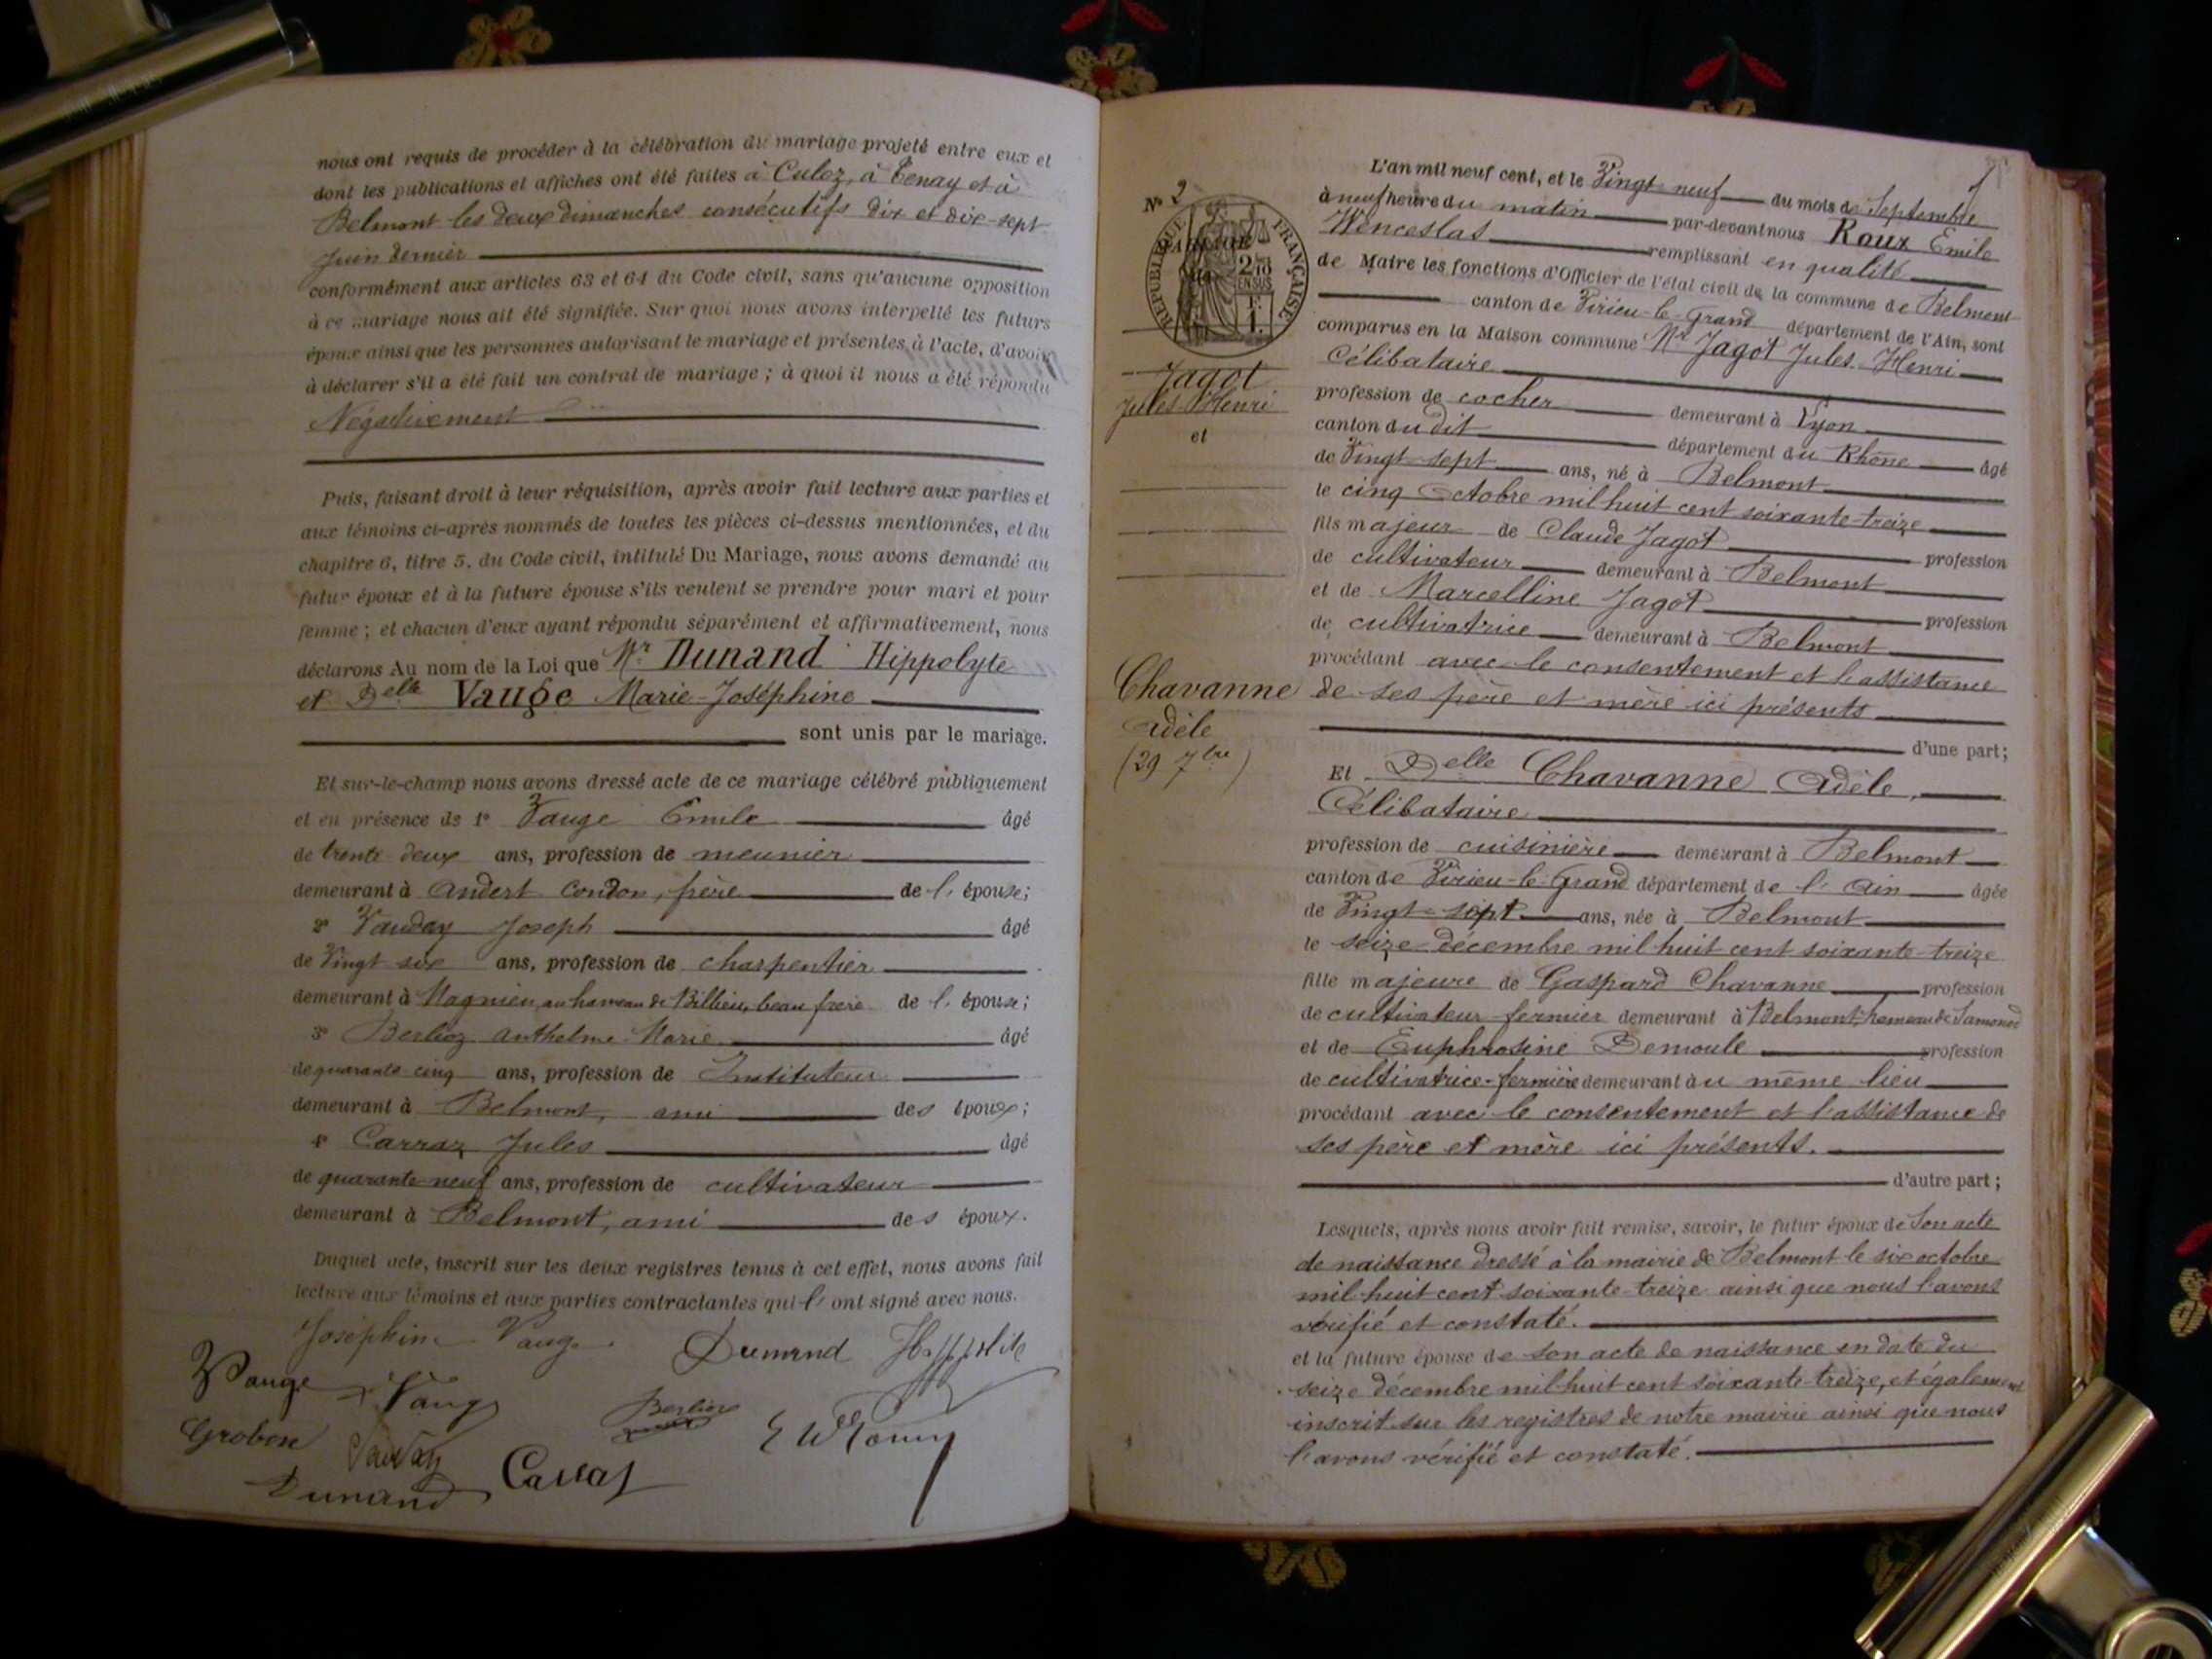 nous ont requis de procéder à la célébration du mariage projeté entre eux et
dont les publications et affiches ont été faites à Culoz, à Tenay et à
Belmont les deux dimanches consécutifs dix et dix-sept
Juin dernier
conformément aux articles 63 et 64 du Code civil, sans qu'aucune opposition
à ce mariage nous ait été signifiée. Sur quoi nous avons interpellé les futurs
époux ainsi que les personnes autorisant le mariage et présentes à l'acte, d'avoir
à déclarer s'il a été fait un contrat de mariage ; à quoi il nous a été répondu
Négativement
Puis, faisant droit à leur réquisition, après avoir fait lecture aux parties et
aux témoins ci-après nommés de toutes les pièces ci-dessus mentionnées, et du
chapitre 6, titre 5, du Code civil, intitulé Du Mariage, nous avons demandé au
futur époux et à la future épouse s'ils veulent se prendre pour mari et pour
femme ; et chacun d'eux ayant répondu séparément et affirmativement, nous
déclarons Au nom de la Loi que Mr Dunand Hippolyte
et Delle Vauge Marie-Joséphine
sont unis par le mariage.
Et sur-le-champ nous avons dressé acte de ce mariage célébré publiquement
et en présence de 1° Vauge Emile âgé
de trente deux ans, profession de meunier
demeurant à Andert Condon, frère de l' épouse;
2° Vauday Joseph âgé
de Vingt six ans, profession de charpentier
demeurant à Magnieu, au hameau de Billieu, beau frère de l' épouse;
3° Berlioz Anthelme Marie âgé
de quarante cinq ans, profession de Instituteur
demeurant à Belmont, ami des époux;
4° Carraz Jules âgé
de quarante neuf ans, profession de cultivateur
demeurant à Belmont, ami des époux.
Duquel acte, inscrit sur les deux registres tenus à cet effet, nous avons fait
lecture aux témoins et aux parties contractantes qui l' ont signé avec nous.
Joséphine Vauge Dumand
Vauge Vauge Berlioz
Dunand
N° 2
RÉPUBLIQUE FRANÇAISE
Jagot
Jules Henri
et
Chavanne
Adèle
(29 7bre)
L'an mil neuf cent, et le Vingt neuf du mois de Septembre
à neuf heure du matin par-devant nous Roux Emile
Wenceslas remplissant en qualité
de Maire les fonctions d'Officier de l'état civil de la commune de Belmont
canton de Virieu-le-Grand département de l'Ain, sont
comparus en la Maison commune Mr Jagot Jules Henri
Célibataire
profession de cocher demeurant à Lyon
canton du dit département du Rhône âgé
de Vingt sept ans, né à Belmont
le cinq Octobre mil huit cent soixante-treize
fils majeur de Claude Jagot profession
de cultivateur demeurant à Belmont
et de Marcelline Jagot profession
de cultivatrice demeurant à Belmont
procédant avec le consentement et l'assistance
de ses père et mère ici présents
d'une part;
Et Delle Chavanne Adèle,
Célibataire
profession de cuisinière demeurant à Belmont
canton de Virieu-le-Grand département de l'Ain âgée
de Vingt-sept ans, née à Belmont
le seize décembre mil huit cent soixante-treize
fille majeure de Gaspard Chavanne profession
de cultivateur-fermier demeurant à Belmont, hameau de
et de Euphrosine Demoule profession
de cultivatrice-fermière demeurant au même lieu
procédant avec le consentement et l'assistance de
ses père et mère ici présents.
d'autre part;
Lesquels, après nous avoir fait remise, savoir, le futur époux de Son acte
de naissance dressé à la mairie de Belmont le six octobre
mil huit cent soixante-treize ainsi que nous l'avons
vérifié et constaté.
et la future épouse de son acte de naissance en date du
seize décembre mil huit cent soixante-treize, et également
inscrit sur les registres de notre mairie ainsi que nous
l'avons vérifié et constaté.